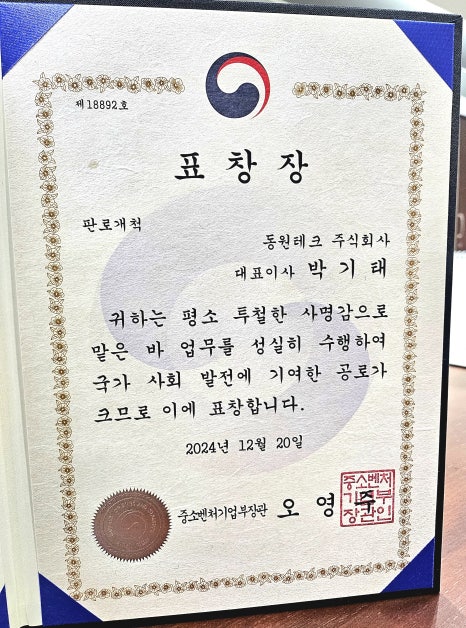 제18892호
표창장
판로개척
동원테크 주식회사
대표이사 박기태
귀하는 평소 투철한 사명감으로
맡은 바 업무를 성실히 수행하여
국가 사회 발전에 기여한 공로가
크므로 이에 표창합니다.
2024년 12월 20일
중소벤처기업부장관 오영주
중소벤처
기업부
장관인